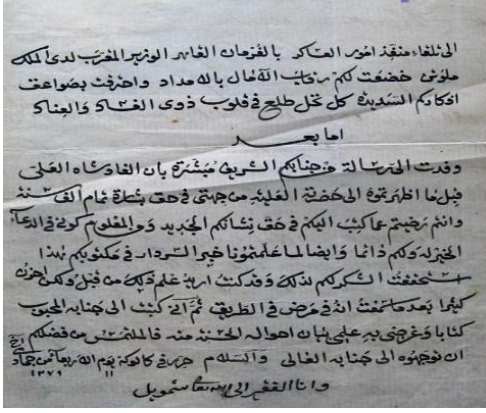 الى تلقاء منقذ امور العساكر بالفرمان القاهر الوزير المقرب لدى الملك
خضعت لكم رقاب بالامداد واحرقت بصواعق
افكاركم السديدة كل نخل طلع في قلوب ذوى الفساد والعناد
اما بعد
وفدت الى رسالة من جنابكم الشريف مبشرة بان
قبل ما اظهرتموه الى حضرته العلية من جهتى فى حق بشارة تمام الف سنة
وانتم رضيتم عما كتبت اليكم فى حق نشانكم الجديد ومن المعلوم كونى فى الدعاء
الخير له ولكم دائما وايضا لما علمتمونا خبر السردار فى مكتوبكم هذا
استحققت الشكر لكم لذلك وقد كنت اريد علم ذلك من قبل ولكن احزن
كثيرا بعد ما سمعت انه فى مرض فى الطريق ثم انى كتبت الى جنابه المحبوب
كتابا وغرضى به على بيان احواله الحسنة منه فالملتمس من فضلكم
ان توجهوه الى جنابه الغالى والسلام حرر فى كالوكة يوم الاربعا من جماد
١١ ١٢٧٩
وانا الفقير الى الله تعا شمويل